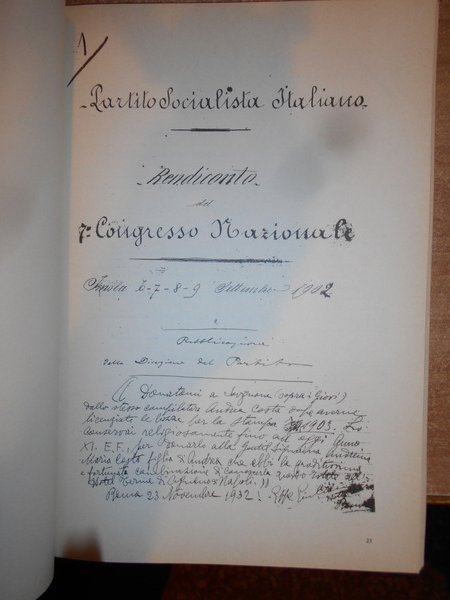 1
Partito Socialista Italiano
Rendiconto
del
7º Congresso Nazionale
Imola 6-7-8-9 Settembre 1902
Pubblicazione
della Direzione del Partito
(( Donatomi a Savignone (sopra i Giovi)
dallo stesso compilatore Andrea Costa dopo averne
licenziato le bozze per la stampa 1903. Lo
conservai religiosamente fino ad oggi Anno
XI. E.F., per donarlo alla Gentile Signorina Andreina
Maria Costa figlia di Andrea che ebbi la
e fortunata combinazione di conoscere
Hotel Terme di Agnano Napoli. ))
Roma 23 Novembre 1932!
23